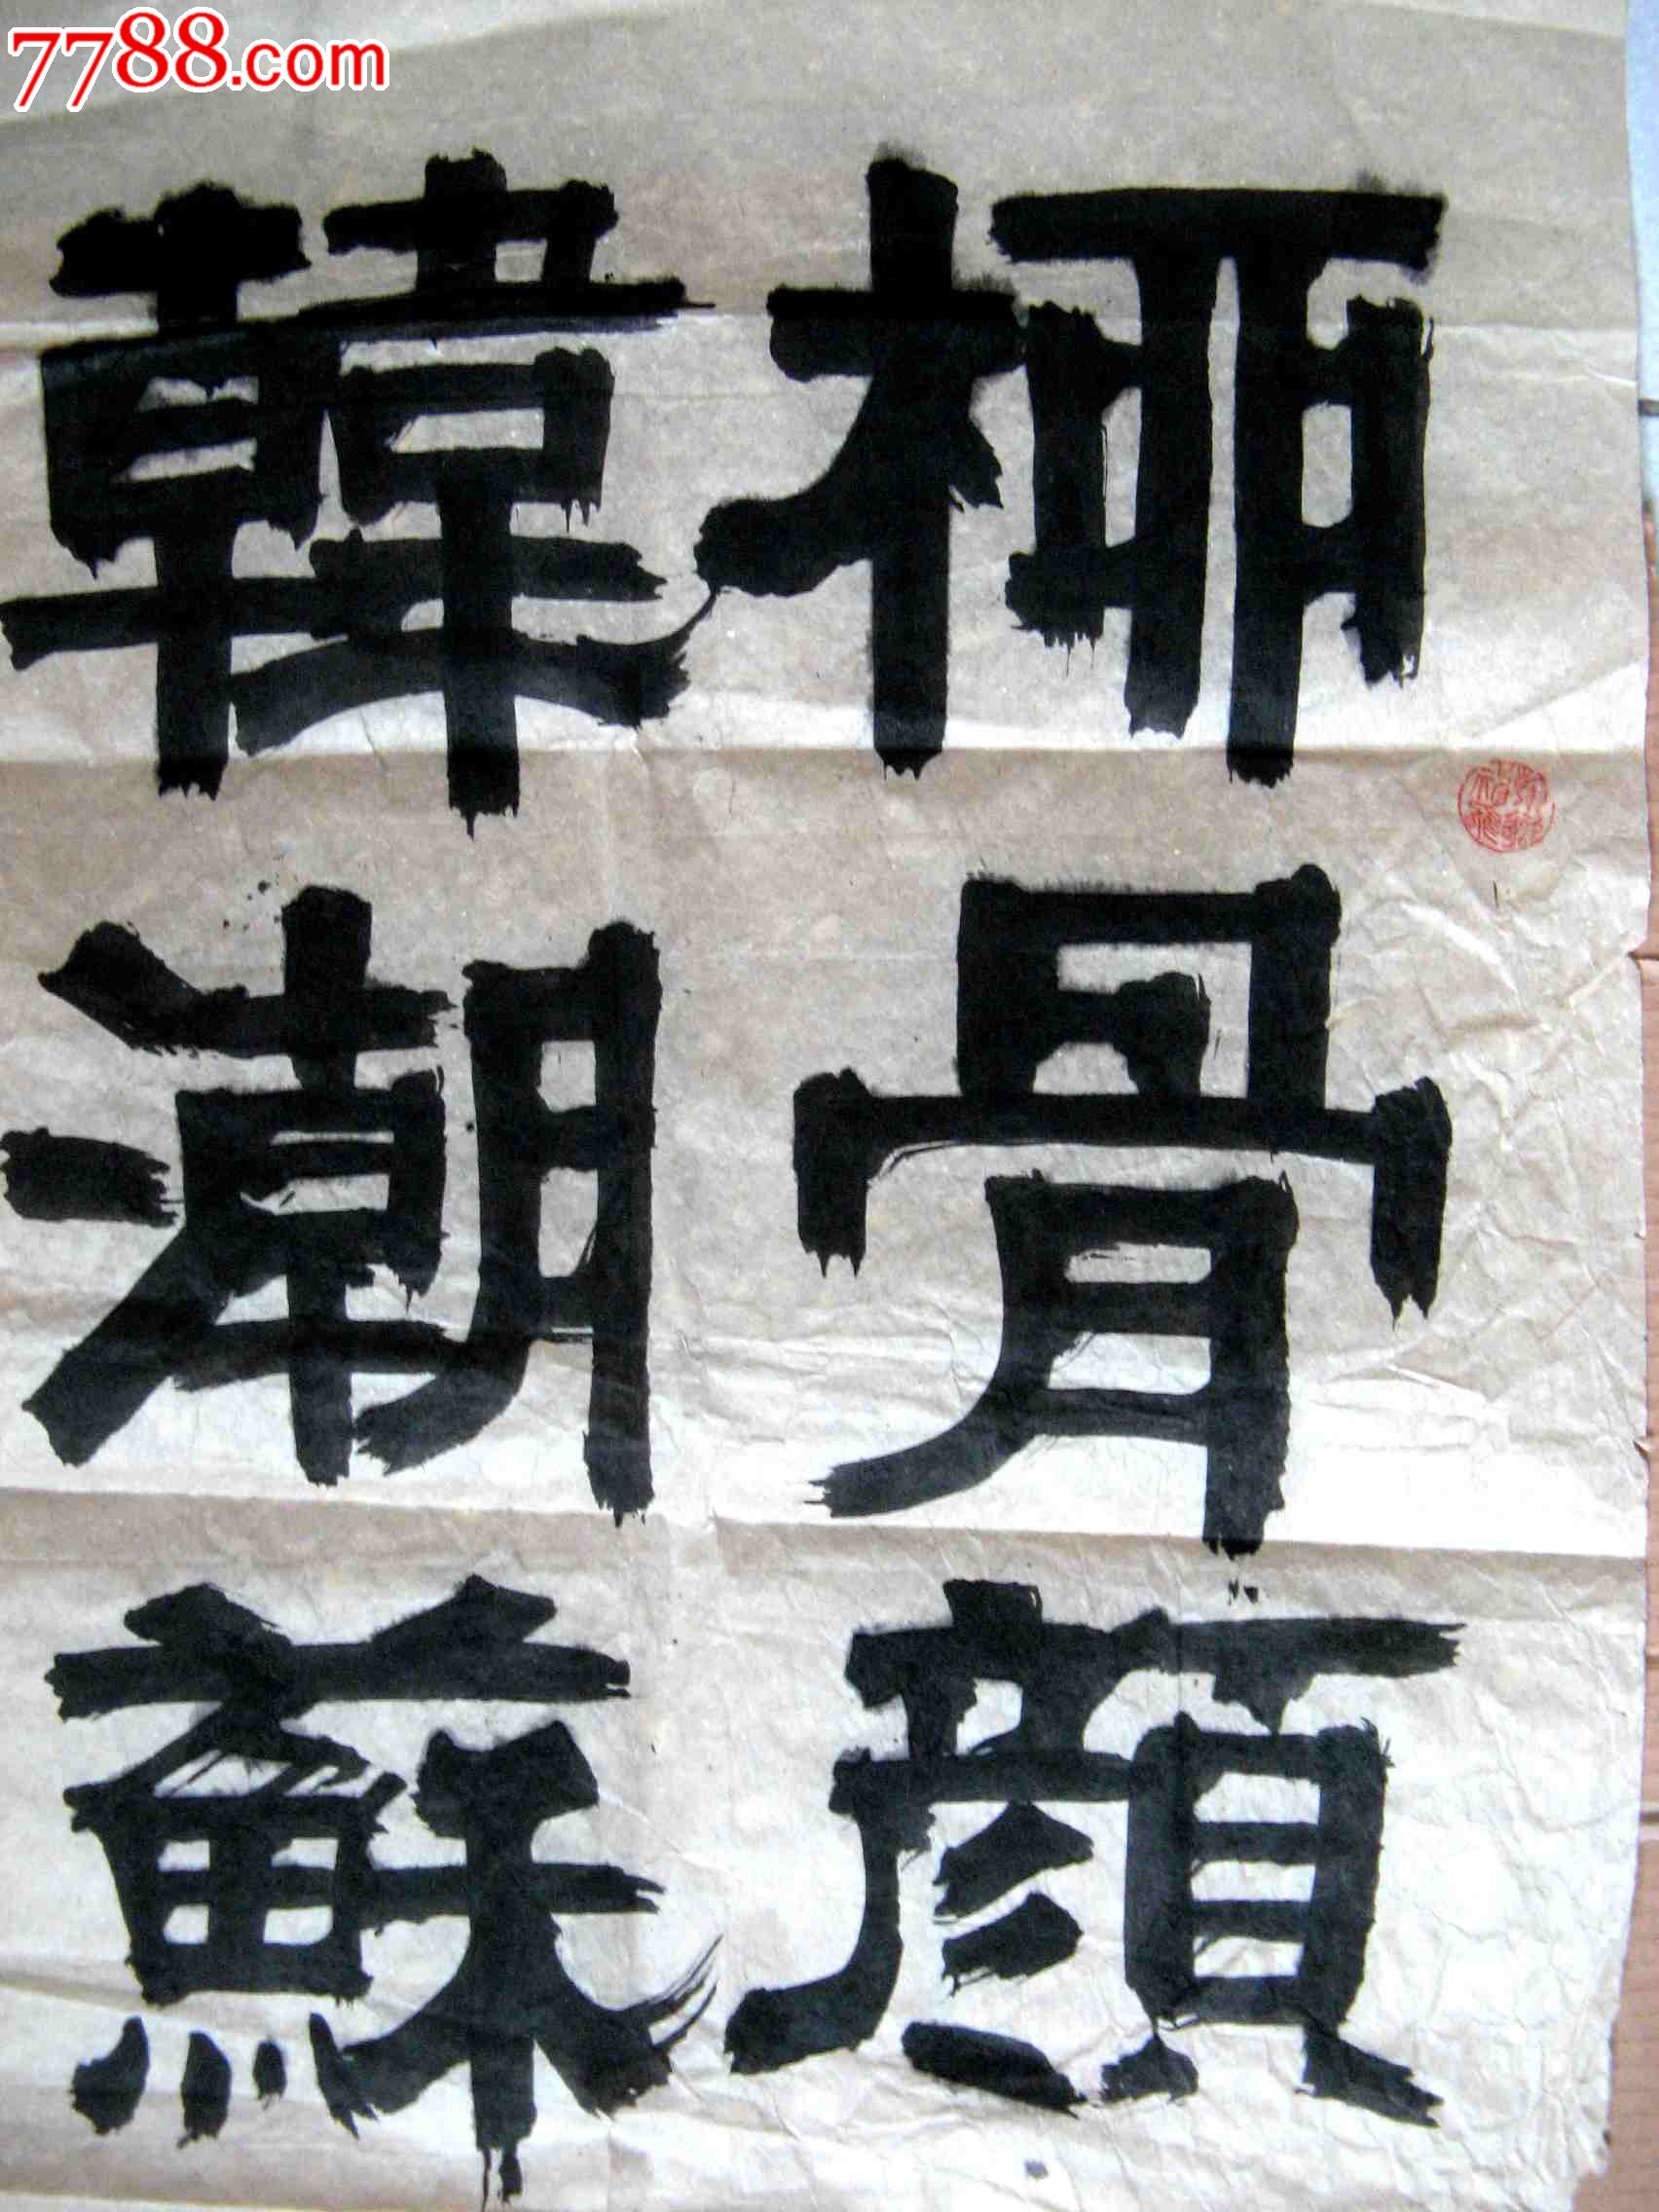 7788.com
桺骨顏
韓潮蘇